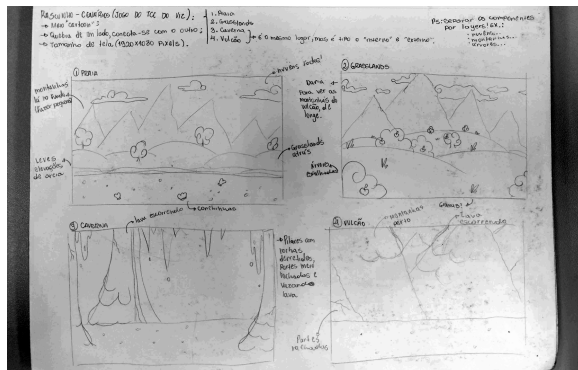 RASCUNHO - CENÁRIOS (JOGO DO TCC DO VIZ):
→ Meio "cartoon";
→ Quebra de um lado, conecta-se com o outro;
→ Tamanho de tela (1920x1080 pixels).
1. Praia
2. Grasslands
3. Caverna
4. Vulcão
→ é o mesmo lugar, mas é tipo o "interno" e "externo".
PS: Separar os componentes
por layers! Ex.:
- nuvens...
- montanhas...
- árvores...
① PRAIA
montanhas
lá no fundo
→ nuvens
Leves
elevações
de areia
→ Grasslands
atrás
→ conchinhas
② GRASSLANDS
Daria
para ver as
montanhas do
vulcão, de
longe.
Árvores
espalhadas
③ CAVERNA
→ lava escorrendo
→ Pilares com
rochas
derretidas,
partes meio
rachadas e
vazando
lava.
④ VULCÃO
montanhas
perto
→ Lava
escorrendo
Partes
rachadas